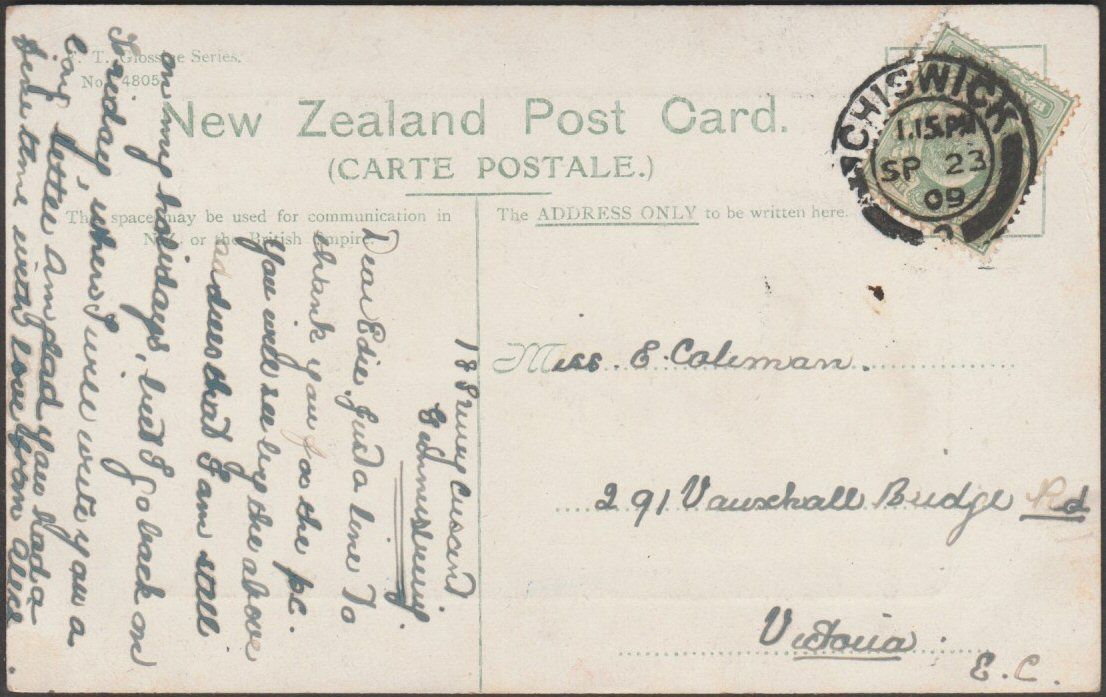 F. T. Glossine Series.
No. 4805
New Zealand Post Card.
(CARTE POSTALE.)
The space may be used for communication in
N.Z. or the British Empire.
The ADDRESS ONLY to be written here.
CHISWICK
1.15.PM
SP 23
09
Miss. E. Coleman.
291 Vauxhall Bridge Rd
Victoria
E. C.
18
Dear Edie, Just a line To
thank you for the pc.
You will see by the above
address that I am still
on my holidays, but I go back on
Friday, when I will write you a
long letter Am glad you had a
fine time with love from Alice.